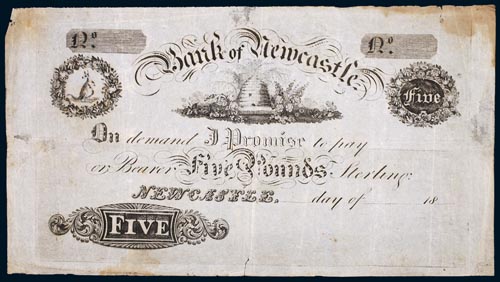 No. No.
Bank of Newcastle
Five
On demand I Promise to pay
or Bearer Five Pounds Sterling
NEWCASTLE. day of 18
FIVE